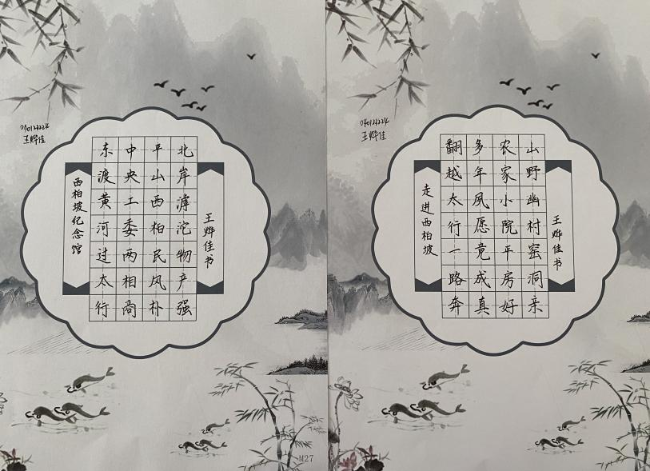 王烨佳
西柏坡纪念馆
东渡黄河过太行
中央工委两相商
平山西柏民风朴
北岸滹沱物产强
王烨佳书
王烨佳
走进西柏坡
翻越太行一路奔
多年夙愿竟成真
农家小院平房好
山野幽村蜜洞亲
王烨佳书